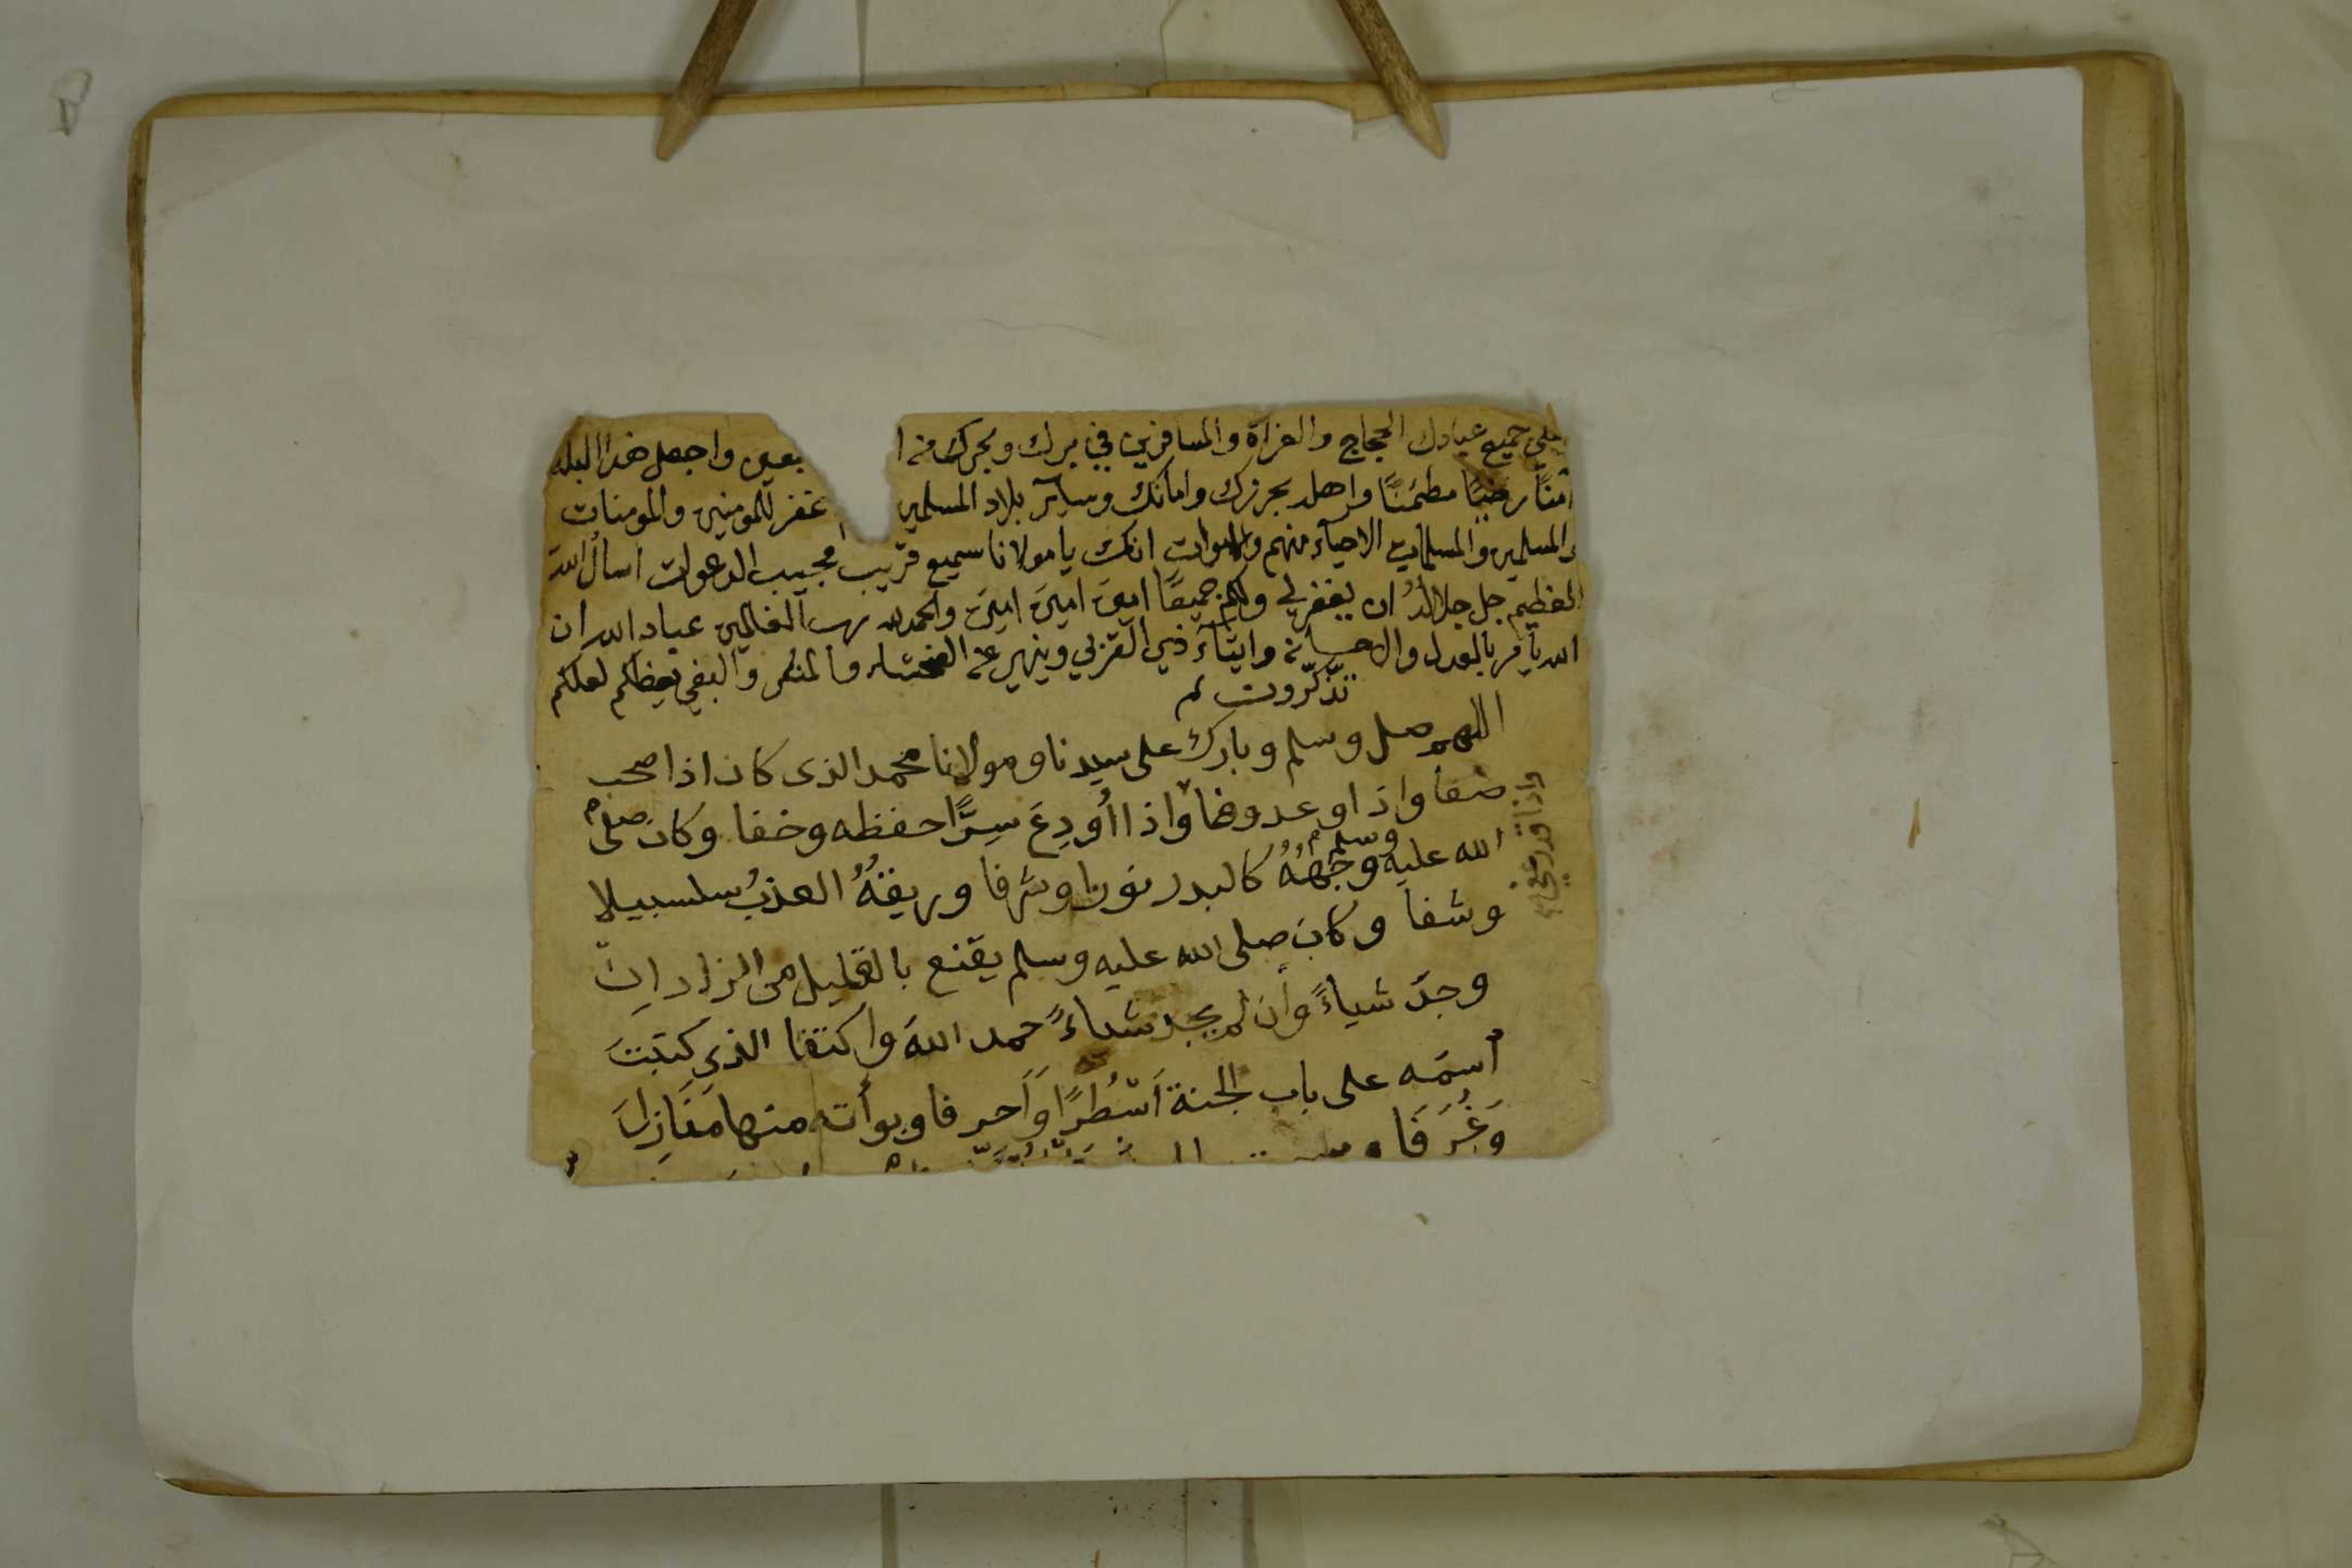 على جميع عبادك الحجاج والغزاة والمسافرين في برك وبحرك من ا بعين واجعل هذا البلد
آمنًا رضيًا مطمئنًا واهله بحرزك وامانك وسآير بلاد المسلمين اغفر للمومنين والمومنات
والمسلمين والمسلمات الاحيآء منهم والاموات انك يا مولانا سميع قريب مجيب الدعوات اسأل الله
العظيم جل جلالهُ ان يغفر لي ولكم جميعًا امينَ امينَ امينَ والحمد لله رب العالمين عباد الله ان
الله يأمر بالعدل والاحسان وايتآء ذي القربي وينهي عن الفحشاء والمنكر والبغي يعظكم لعلكم
تذّكّرون
اللهم صل وسلم وبارك على سيدنا ومولانا محمد الذى كان اذا صحب
صفا واذا وعد وفا واذا اُودِعَ سِرًّا حفظه وخفا وكان صلى
الله عليه وسلم وجْههُ كالبدر نورا وشرفا وريقهُ العذبُ سلسبيلا
وشفا وكان صلى الله عليه وسلم يقنع بالقليل من الزاد ان
وجدَ شياءً وأن لم يجد شياءً حمد اللهَ واكتفا الذي كتبتَ
اسمَه على باب الجنة اَسْطُرًا وَاَحرفا وبوأته منها مَنَازِلَ
وَغُرَفَا
واذا قدر عفى